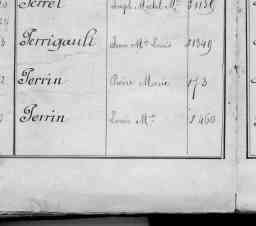 Perret Joseph Michel M. 21139
Perrigault Jean Mie Louis 21349
Perrin Pierre Marie 173
Perrin Louis Mie 2460